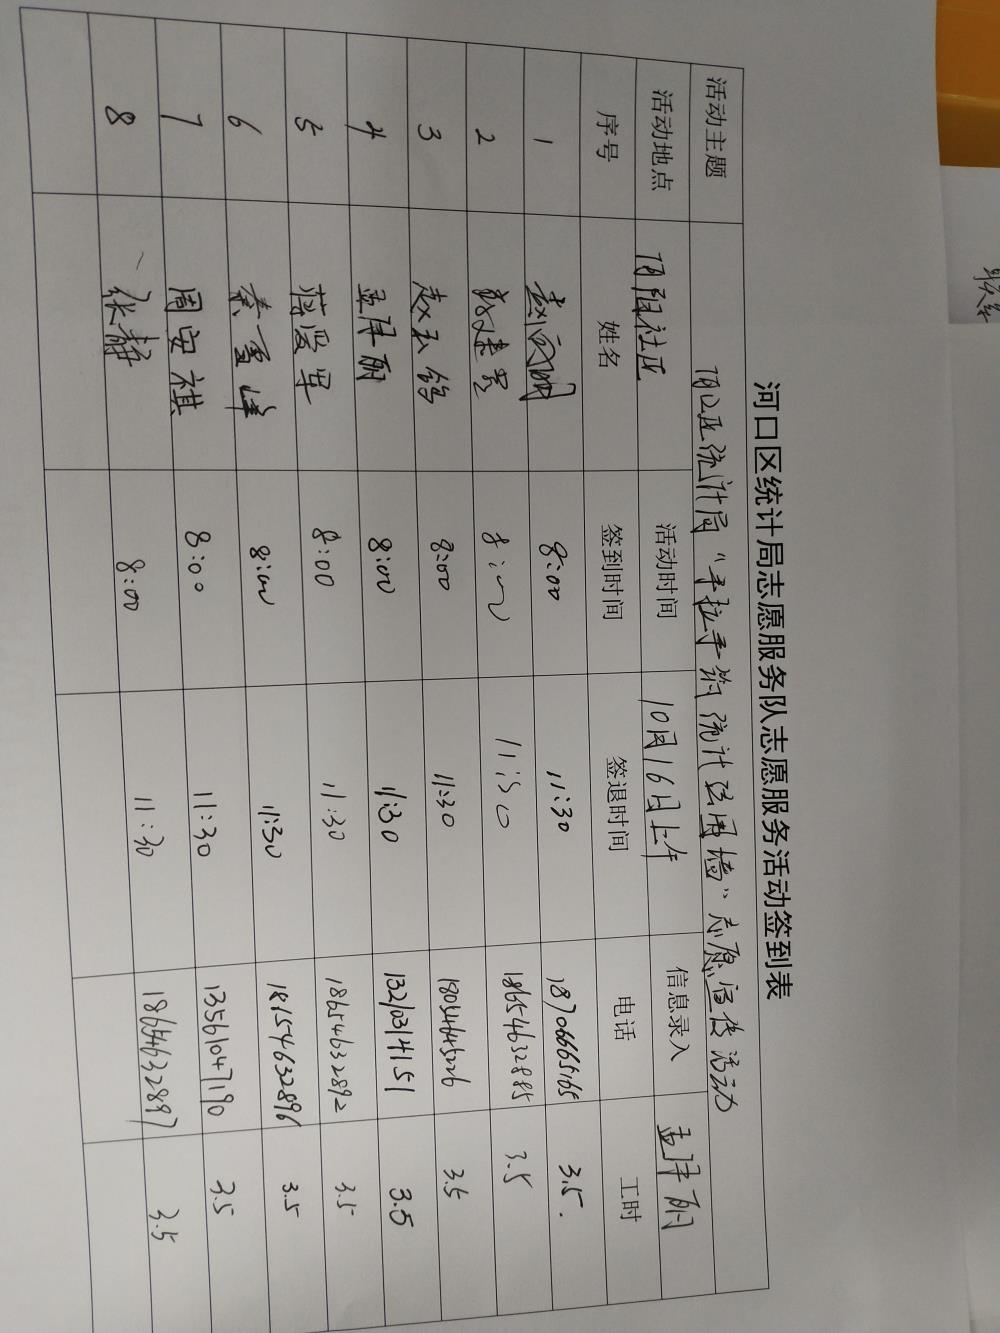 河口区统计局志愿服务队志愿服务活动签到表
活动主题 河口区统计局“手拉手筑统计法用墙”志愿宣传活动
活动地点 河阳社区 活动时间 10月16日上午 信息录入 孟津丽
序号 姓名 签到时间 签退时间 电话 工时
1 8:00 11:30 18706665165 3.5.
2 8:00 11:30 18654632885 3.5
3 8:00 11:30 18054645226 3.5
4 孟津丽 8:00 11:30 13210314151 3.5
5 蒋爱军 8:00 11:30 18654632892 3.5
6 秦雪峰 8:00 11:30 18154632896 3.5
7 周安祺 8:00 11:30 13561047190 3.5
8 张静 8:00 11:30 18654632897 3.5